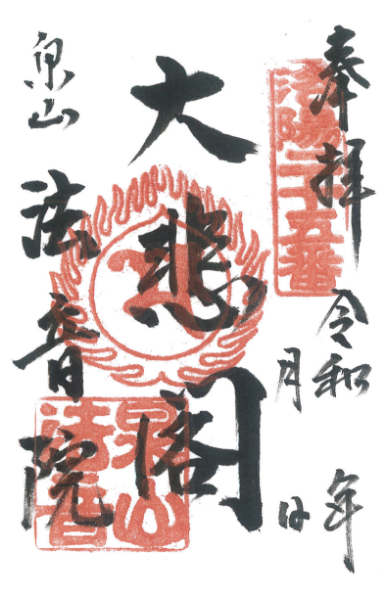 奉拝
洛陽二十五番
令和 年
月 日
大悲閣
泉山
法音院
泉山
法音